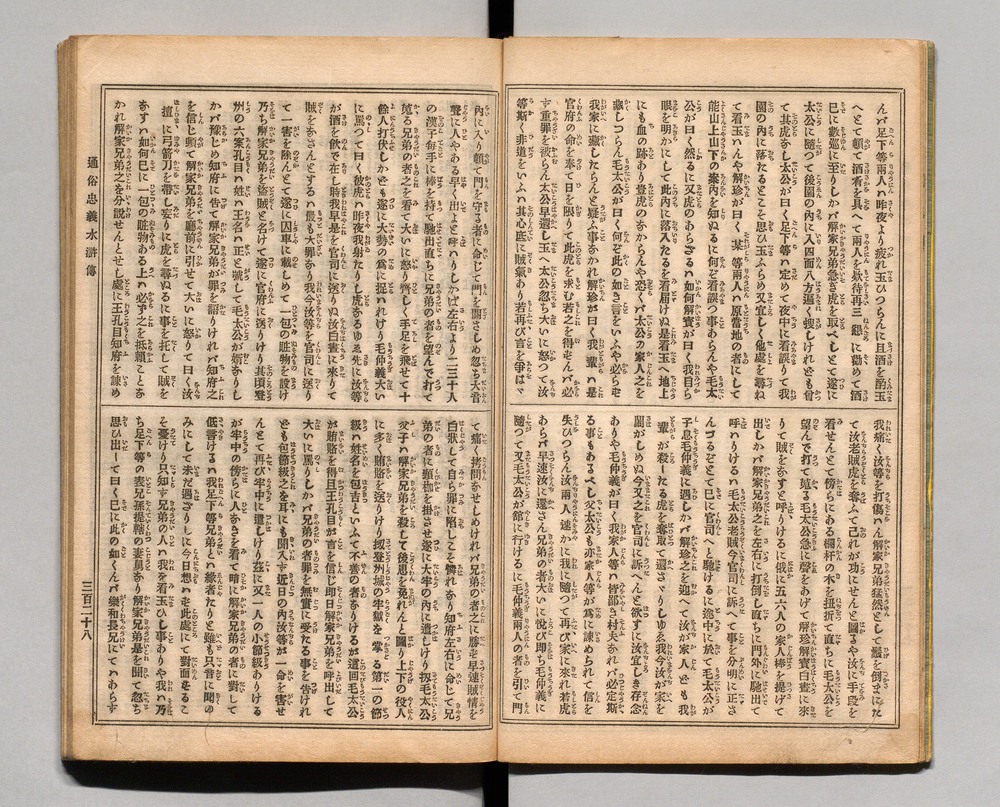 んバ足下等兩人ハ昨夜より疲れ玉ひつらんに且酒を酌玉
へとて頓て酒肴を具へて兩人を欸待再三懇に勸めて酒
巳に數巡に至りしかバ解家兄弟急ぎ虎を取べしとて遂に
太公に隨つて後園の内に入四面八方遍く搜しけれども曾
て其虎なし毛太公が曰く足下等ハ定めて夜中に看誤りて我
園の内に落たるとこそ思ひ玉ふらめ又宜しく他處を尋ね
て看玉へんや解珍が曰く某等兩人ハ原當地の者にして
能山上山下の案内を知ぬるに何ぞ看誤つ事あらんや毛太
公が曰く然るに又虎のあらざるハ如何解寶が曰く我目ら
眼を明かにして此内に落入たるを看届けぬ是看玉へ地上
にも血の跡あり豈虎のなからんや恐くハ太公の家人之を
藏しつらん毛太公が曰く何ぞ此の如き言をいふや必らモ
我家に藏したらんと疑ふ事なかれ解珍が曰く我輩ハ是
官府の命を奉て日を限りて此虎を求む若之を得モんバ必
ず重罪を被らん太公早還し玉へ太公忽ち大いに怒つて汝
等斯る非道をいふハ其心底に賊氣あり若再び言を爭はゞ
我痛く汝等を打傷ハん解家兄弟猛然として鬚を倒まにた
て汝老賊虎を奪ふて己れが功にせんと圖るや汝に手段を
看せんとて傍らにある欄杆の木を扭折て直ちに毛太公を
望んで打て蒐る毛太公急に聲をあげて解珍解寶白晝に來
りて賊をなすと呼りけるに俄に五六人の家人棒を提げて
出しかバ解家兄弟之を左右に打倒し直ちに門外に馳出て
呼ハりけるハ毛太公老賊今官司に訴へて事を分明に正さ
んづるぞとて巳に官司へと馳けるに途中に於て毛太公が
子息毛仲義に遇しかバ解珍之を迎へて汝が家人ども我
輩が殺したる虎を奪取て還さゞりしゆゑ我今汝が家を
鬧がしめぬ今又之を官司に訴へんと欲すに汝宜しき存念
ありや毛仲義が曰く我家人等ハ皆鄙村夫なれバ必定斯
る事もあるべし父太公も亦家人等が爲に諫められて信を
失ひつらん汝兩人速かに我に隨つて再び家に來れ若虎
あらバ早速汝に還さん兄弟の者大いに悅び即ち毛仲義に
隨つて又毛太公が館に行けるに毛仲義兩人の者を引て門
内に入り頓て門を守る者に命じて門を關さしめ忽ち大音
聲に人やある早く出よと呼ハりしかバ左右より二三十人
の漢子毎手に棒を持て馳出直ちに兄弟の者を望んで打て
蒐る兄弟の者之を看て大いに怒り齊しく手足を飛せて十
餘人打伏しかども遂に大勢の爲に捉ハれけり毛仲義大い
に罵つて曰く彼虎ハ昨夜我射たりし虎なるゆゑ然に汝等
が酒を飲で在し時我早是を官司に送りぬ汝白晝に來りて
賊をなさんとするハ最も大罪なり我今汝等を官司に送り
て一害を除んとて遂に囚車に載しめて一包の賍物を設け
乃ち解家兄弟を盜賊と名けて遂に官府に送りけり其頃登
州の六案孔目ハ姓ハ王名ハ正と號して毛太公が婿なりし
かバ豫じめ知府に告て解家兄弟が罪を語りけれバ知府之
を信じ頓て解家兄弟を廳前に引せて大いに怒りて曰く汝
擅に弓箭刀を帶し妄りに虎を尋ぬるに事を托して賊を
なすハ如何巳に一包の賍物ある上ハ必ず之を抵賴ことな
かれ解家兄弟之を分説せんとせし處に王孔目知府を諫め
て痛く拷問なせしめけれバ兄弟の者之に勝モ早速賊情を
白狀して自ら罪に陷しこそ憐れなり知府左右に命じて兄
弟の者に頸枷を掛させ遂に大牢の内に遣しけり扨毛太公
父子ハ解家兄弟を殺して後患を免れんと圖り上下の役人
に多く賄賂を送りけり扨登州城の牢獄を掌る第一の節
級ハ姓名を包吉といふて不善の者なりけるが這回毛太公
が賄賂を得且王孔目が言を信じ即日解家兄弟を呼出して
大いに罵りしかバ兄弟の者罪を無實に受たる事を告けれ
ども包節級之を耳にも聞入ず近日の内汝等が一命を害せ
んとて再び牢中に遣しけり茲に又一人の小節級ありける
が牢中の傍らに人なきを看て暗に解家兄弟の者に對して
低言けるハ我足下等兄弟と縁者たりと雖も只昔に聞の
みにして未だ遇ざりしに今日想ハモ此處にて對面なるこ
そ憂けり只知ず兄弟の人ハ我を看玉ひし事ありや我ハ乃
ち足下等の表兄孫提轄の妻舅なり解珍解寶是を聞て忽ち
思ひ出して曰く巳に此の如くんバ樂和長兄にてハあらず
通俗忠義水滸傳
三百二十八